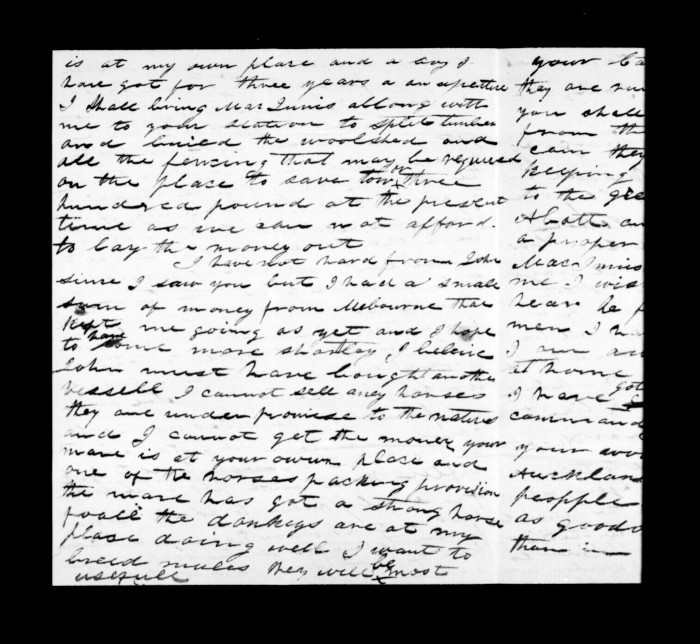 is at my own place and a boy I
have got for three years a
I Shall bring Mac Innis allong with
me to your station to split timber
and buied the woolshed and
all the fencing that may be required
on the place to save tow or three
hundred pound at the present
time as we can not afford
to lay the money out
I have not hard from John
since I saw you but I had a small
sum of money from Melbourne that
kept me going as yet and I hope
to have some more shortley I beleive
John must have bought another
vessell I cannot sell aney horses
they are under promise to the natives
and I cannot get the money your
mare is at your owen place and
one of the horses packing provision
the mare has got a strong horse
foall the donkeys are at my
place doing well I want to
breed mules they will be most
usefull
your
they are
you shall
from th
can they
keeping
to the gre
Abott an
a proper
Mac Innis
me I wis
hear he
men I ha
I am an
at home
I have got
command
your
Auckland
peopple
as good
than in